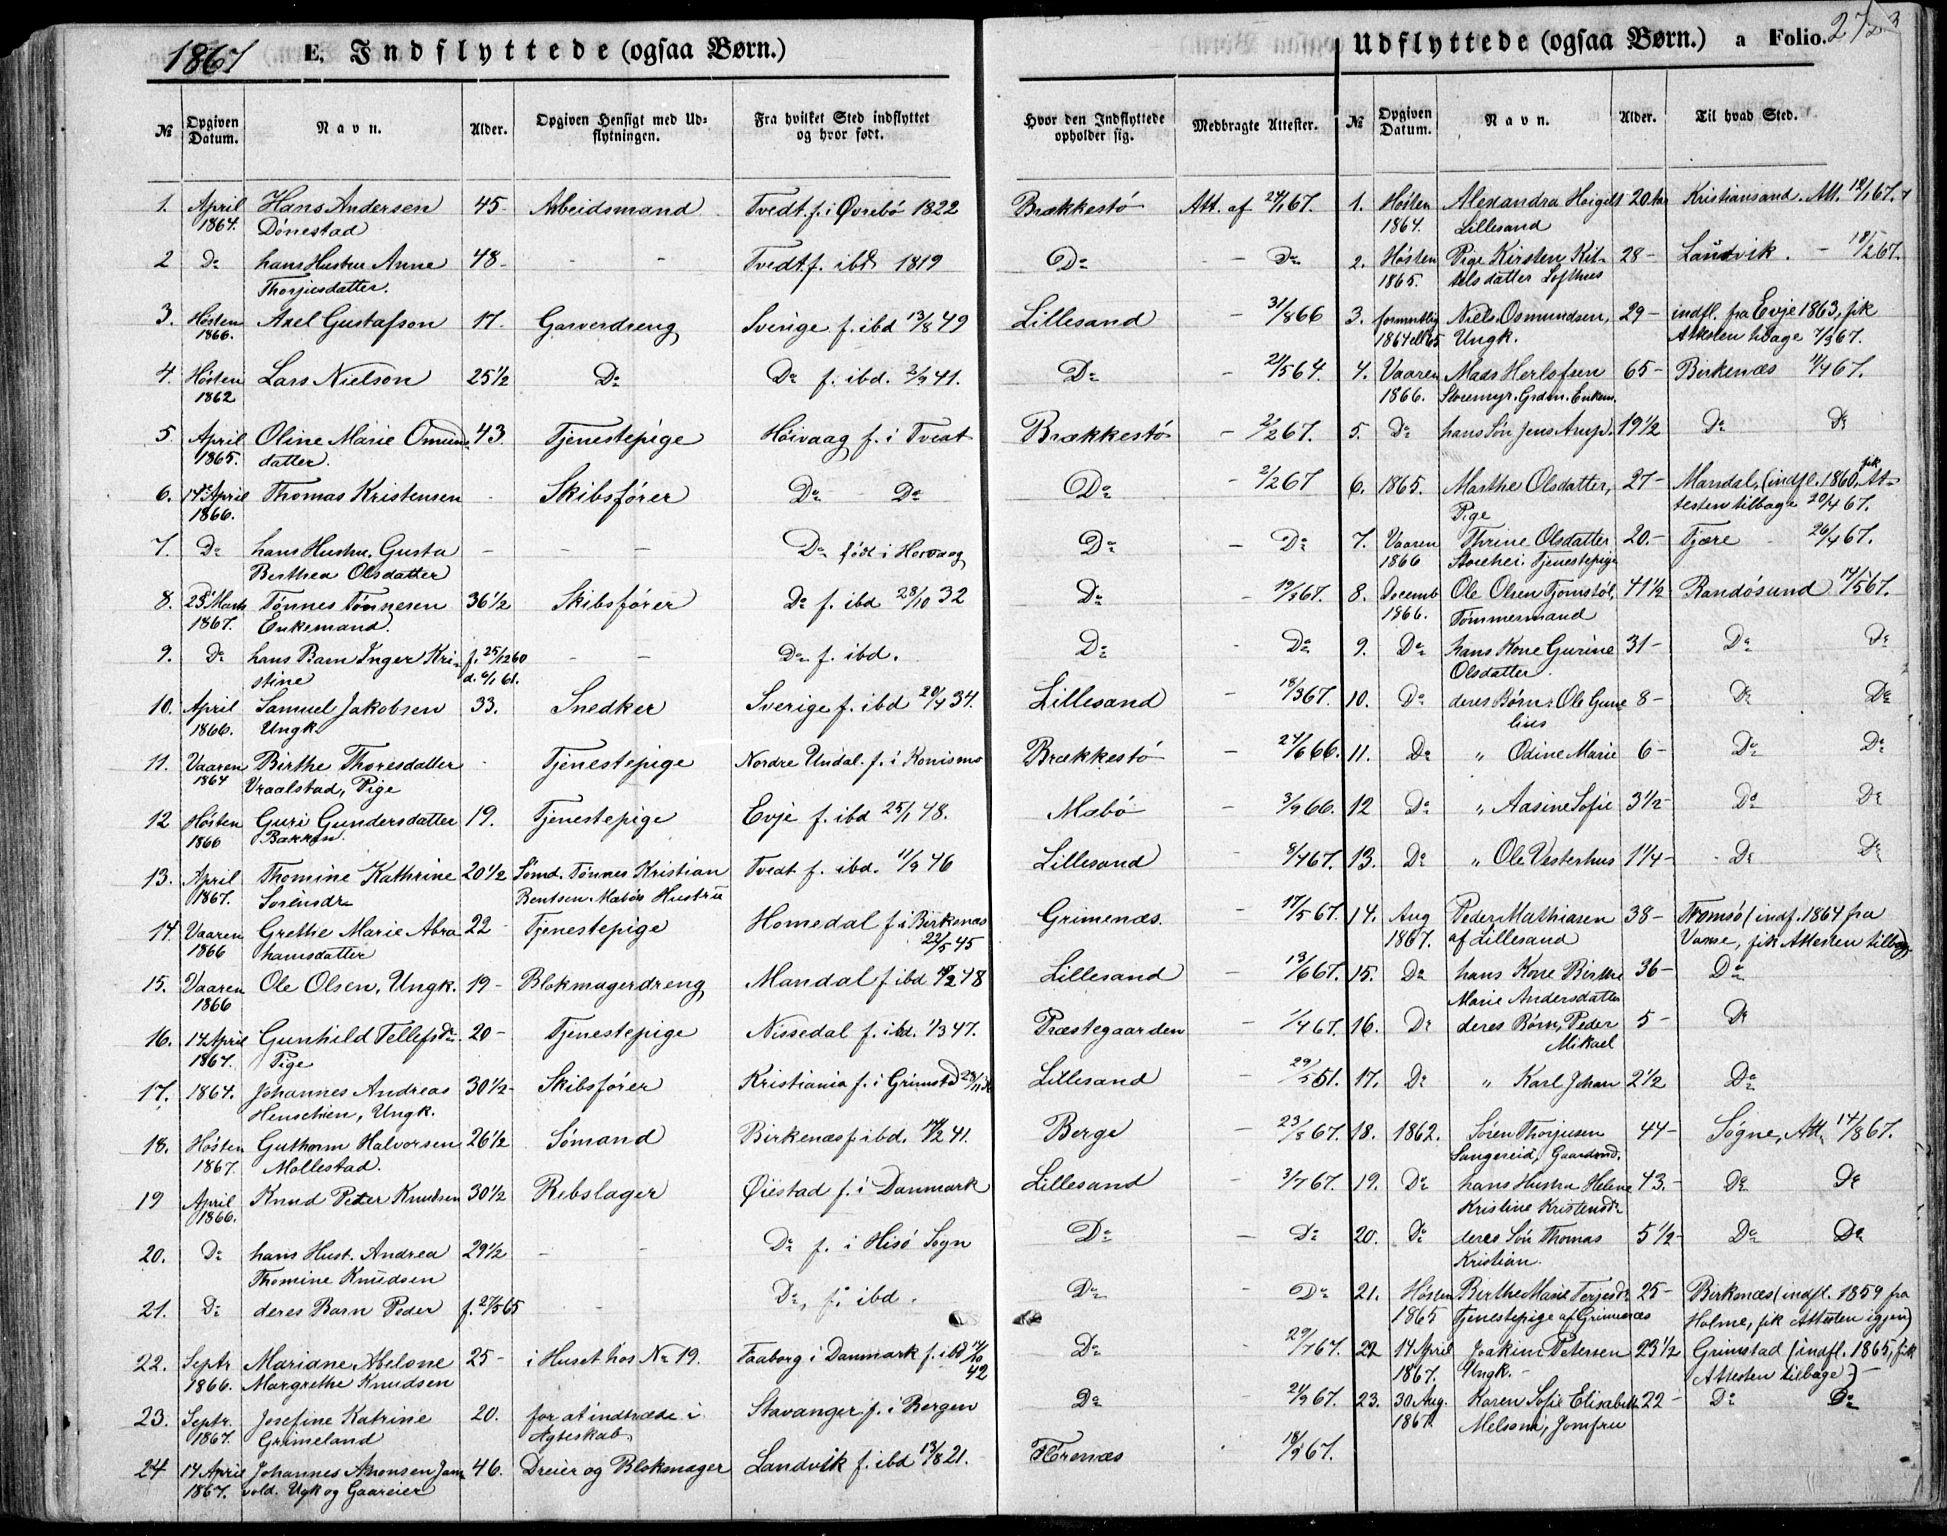 1867
E. Indflyttede (ogsaa Børn.)
№ Opgiven Datum. Navn. Alder. Opgiven Hensigt med Udflytningen. Fra hvilket Sted indflyttet og hvor født.
1. April 1864. Hans Andersen Dønestad 45 Arbeidsmand Tvedt f. i Øvrebö 1822
2 Do hans Hustru Anne Thorjusdatter. 48- - - Tvedt f. ibd 1819
3. Høsten 1866. Axel Gustafson 17. Garverdreng Sverige f. ibd 13/8 49
4. Høsten 1862 Lars Nielson 25 1/2 Do Do f. ibd. 2/9 41.
5. April 1865. Oline Marie Omunddatter. 43. Tjenestepige Höivaag f. i Tveat
6. 14 April 1866. Thomas Kristensen - Skibsfører Do Do
7. Do hans Hustru. Gusta Berthea Olsdatter - - - Do født i Hovaag
8. 23 Marts 1867. Tønnes Tønnesen Enkemand. 36 1/2 Skibsfører Do f. ibd 28/10 32
9. Do hans Barn Inger Kristine f. 25/12 60 d. 6/1 61. - - Do f. ibd.
10. April 1866. Samuel Jakobsen Ungk. 33. Snedker Sverige f. ibd 20/4 34.
11. Vaaren 1864 Birthe Thoresdatter Vraalstad, Pige - Tjenestepige Nordre Undal. f. i Konismo
12 Høsten 1866 Guri Gundersdatter Bakken. 19. Tjenestepige Evje f. ibd 25/1 48.
13. April 1867. Thomine Kathrine Sørensdr 20 1/2 Sömd. Tönnes Kristian Bentsen Mæbös Hustru Tvedt f. ibd. 11/9 46
14. Vaaren 1866 Grethe Marie Abrahamsdatter 22 - Tjenestepige Homedal f. i Birkenæs 22/5 45
15. Vaaren 1866 Ole Olsen, Ungk. 19- Blokmagerdreng Mandal f ibd 14/2 48
16. 14 April 1867. Gunhild Tellefsdr. Pige 20- Tjenestepige Nissedal f. ibd. 1/3 47.
17. 1864. Johannes Andreas Henschien, Ungk. 30 1/2- Skibsfører Kristiania f. i Grimstad
18. Høsten 1867. Guthorm Halvorsen Mollestad. 26 1/2 Sömand Birkenæs f. ibd. 14/2 41.
19 April 1866. Knud Peter Knudsen 30 1/2 Rebslager Øiestad f. i Danmark
20. Do hans Hust. Andrea Thomine Knudsen 29 1/2 - - Do f. i Hisö Sogn
21. Do deres Barn Peder f. 27/5 65 - Do, f. ibd.
22. Septr 1866. Mariane Abelone Margrethe Knudsen 25- i Huset hos No 19. Faaborg i Danmark f. ibd 14/10 42
23. Septr. 1867. Josefine Katrine Grimeland 20. for at indtræde i Ægteskab, Stavanger f. i Bergen
24 14 April 1867. Johannes Aronsen vold. Ugk og Gaareier 46. Dreier og Blokmager Landvik f. ibd 13/8 21.
Hvor den Indflyttede opholder sig. Medbragte Attester.
Brækkestö Att. af 24/1 67.
Do - - Do
Lillesand - 31/8 66
Do - 21/5 64.
Brækkestö - 2/2 67.
Do - 2/2 67
Do - Do
Do - 19/3 67.
Do - Do
Lillesand - 18/3 67.
Brækkestö - 24/6 66.
Mæbö - 3/9 66.
Lillesand - 8/4 67.
Grimenæs. - 17/5 67.
Lillesand - 13/6 67.
Præstegaarden - 1/4 67.
Lillesand - 29/5 51.
Berge - 23/8 67.
Lillesand - 3/7 67.
Do - Do
Do - Do
Do - 29/7 67.
Do - 21/9 67.
18/9 67.
Udflyttede (ogsaa Børn.) a Folio. 272
№ Opgiven Datum. Navn. Alder. Til hvad Sted.
1. Høsten 1864. Alexandra Lillesand 20 Kristiansand. Att. 12/1 67.
2. Høsten 1865. Pige Kirsten Kittelsdatter Lofthus 28- Landvik. - 18/2 67.
3. formentlig 1864 el 65 Niels Osmundsen, Ungk. 29- indfl. fra Evje 1863, fik Attesten tilbage 7/3 67.
4. Vaaren 1866. Mads Herlofsen Storemyr. Grdm. Enkem. 65- Birkenæs 1/4 67.
5. Do hans Sön Jens Arup. 19 1/2 Do Do
6. 1865. Marthe Olsdatter, Pige 27- Mandal, (indfl. 1860, fik Attesten tilbage 20/4 67.
7. Vaaren 1866 Thrine Olsdatter Storehei. Tjenestepige 20.- Fjære 26/4 67.
8. Decemb 1866. Ole Olsen Tjomstöl, Tømmermand 41 1/2 Randösund 14/5 67.
9. Do hans Kone Gurine Olsdatter. 31- Do Do
10. Do deres Børn: Ole Gunelius 8- Do Do
11. Do " Odine Marie 6- Do Do
12 Do " Aasine Sofie 3 1/2- Do Do
13. Do " Ole Vesterhus 1 1/4- - Do Do
14. Aug 1867. Peder Mathiasen af Lillesand 38- Tromsö (indf. 1864 fra Vanse, fik Attesten tilbage)
15. Do hans Kone Birthe Marie Andersdatter 36- Do
16. Do deres Børn, Peder Mikael 5- Do
17. Do " Karl Johan 2 1/2 Do
18. 1862. Sören Thorjusen Sangereid, Gaardmd. 44- Søgne, Att. 14/8 67.
19. Do hans Hustru Helene Kristine Kristensdr 43.- Do Do
20. Do deres Sön Thomas Kristian. 5 1/2- Do Do
21. Høsten 1865 Birthe Marie Terjesdr Tjenestepige af Grimenæs 25- Birkenæs (indfl. 1859 fra Holme, fik Attesten igjen)
22 14 April 1867. Joakim Petersen Ungk. - 23 1/2 Grimstad (indfl. 1865, fik Attesten tilbage)-
23. 30 Aug. 1867. Karen Sofie Elisabeth Melsom, Jomfru 22- Do Do